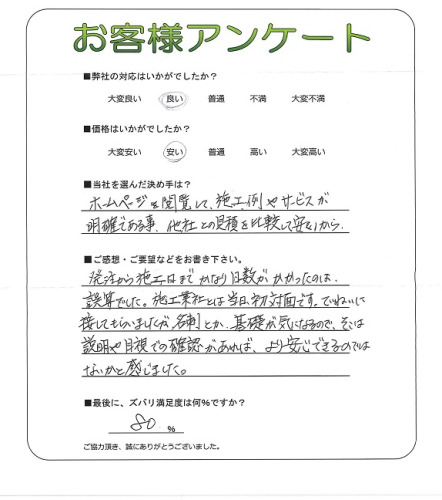 お客様アンケート
■弊社の対応はいかがでしたか？
大変良い 良い 普通 不満 大変不満
■価格はいかがでしたか？
大変安い 安い 普通 高い 大変高い
■当社を選んだ決め手は？
ホームページを閲覧して、施工例やサービスが
明確である事、他社との見積を比較して安いから。
■ご感想・ご要望などをお書き下さい。
発注から施工日までかなり日数がかかったのは、
誤算でした。施工業社とは当日、初対面です。ていねいに
接してもらいましたが、名刺とか、基礎が気になるので、そこは
説明や目視での確認があれば、より安心できるのでは
ないかと感じました。
■最後に、ズバリ満足度は何%ですか？
80 %
ご協力頂き、誠にありがとうございました。